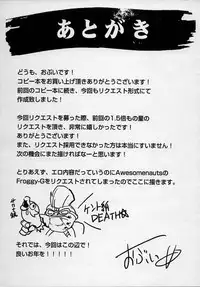 あとがき
どうも、おぶいです！
コピー本をお買い上げ頂きありがとうございます！
前回のコピー本に続き、今回もリクエスト形式にて
作成致しました！
今回リクエストを募った際、前回の1.5倍もの量の
リクエストを頂き、非常に嬉しかったです！
ありがとうございます！
また、リクエスト採用できなかった方は本当にすいません！
次の機会にまた描ければなーと思います！
とりあえず、エロ内容だっていうのにAwesomenautsの
Froggy-Gをリクエストされてしまったのでここに描きます。
DEATH
それでは、今回はこの辺で！
良いお年を！！！！！